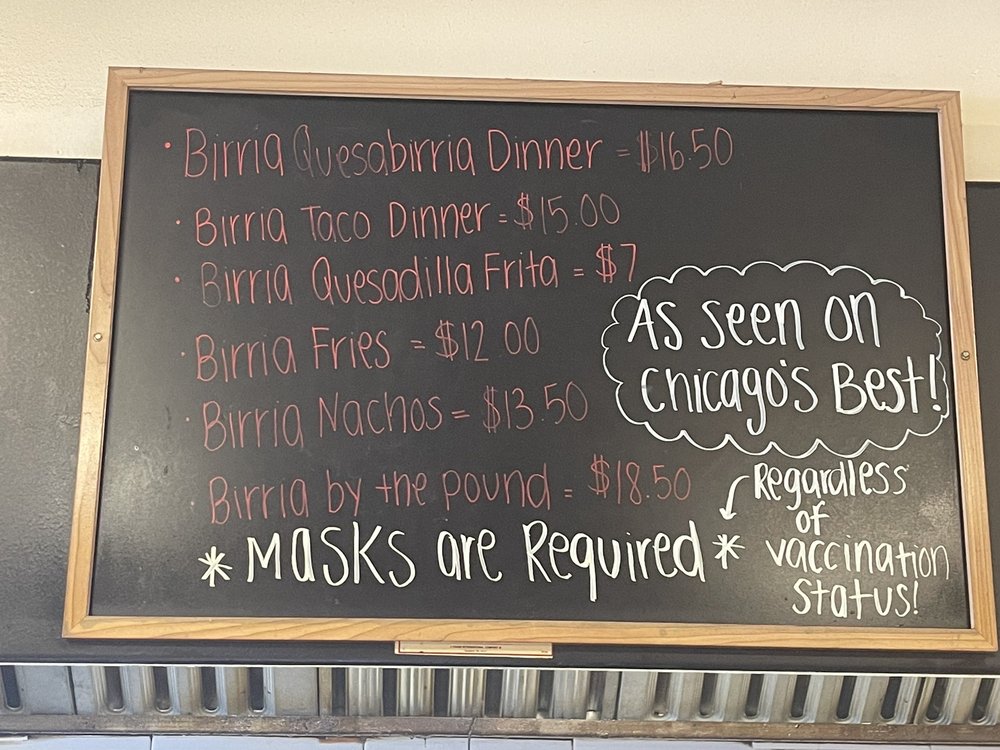 • Birria Quesabirria Dinner = $16.50
• Birria Taco Dinner = $15.00
• Birria Quesadilla Frita = $7
• Birria Fries = $12.00
• Birria Nachos = $13.50
• Birria by the pound = $18.50
As seen on
Chicago's Best!
* Masks are Required *
Regardless
of
vaccination
status!